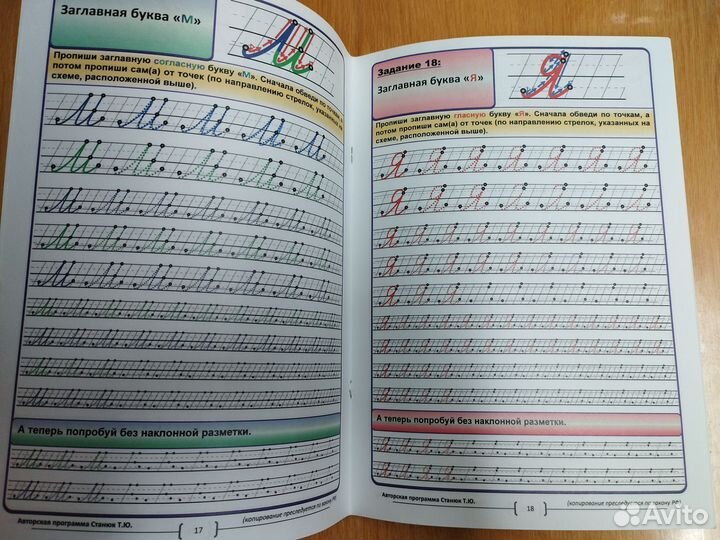 Заглавная буква «М»
Пропиши заглавную согласную букву «М». Сначала обведи по точкам, а
потом пропиши сам(а) от точек (по направлению стрелок, указанных на
схеме, расположенной выше).
А теперь попробуй без наклонной разметки.
Авторская программа Станюк Т.Ю.
17
(копирование преследуется по закону РФ)
Задание 18:
Заглавная буква «Я»
Пропиши заглавную гласную букву «Я». Сначала обведи по точкам, а
потом пропиши сам(а) от точек (по направлению стрелок, указанных на
схеме, расположенной выше).
А теперь попробуй без наклонной разметки.
Авторская программа Станюк Т.Ю.
18
(копирование преследуется по закону РФ)
Avito